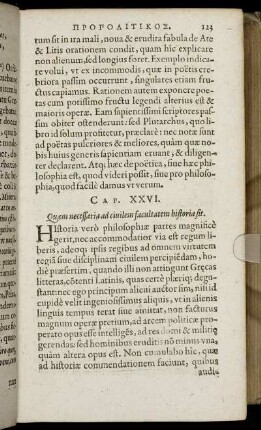 ΠΡΟΡΟΛΙΤΙΚΟΣ. 123
tum sit in ira mali, noua & erudita fabula de Ate
& Litis orationem condit, quam hic explicare
non alienum, sed longius foret. Exemplo indica-
re volui, vt ex incommodis, quæ in poëtis cre-
briora passim occurrunt, singulares etiam fru-
ctus capiamus. Rationem autem exponere poë-
tas cum potissimo fructu legendi alterius est &
maioris operæ. Eam sapientissimi scriptores pas-
sim obiter ostenderunt: sed Plutarchus, quo li-
bro id solum profitetur, præclarè: nec notæ sunt
ad poëtas pulcriores & meliores, quàm quæ no-
bis huius generis sapientiam eruant, & diligen-
ter declarent. Atq; hæc de poëtica, siue hæc phi-
losophia est, quod videri possit, siue pro philoso-
phia, quod facilè damus vt verum.
CAP. XXVI.
Quàm necessaria ad ciuilem facultatem historia sit.
Historia verò philosophiæ partes magnificè
gerit, nec accommodatior via est regum li-
beris, adeoq; ipsis regibus ad omnem virtutem
regiā siue disciplinam ciuilem percipiēdam, ho-
die præsertim, quando illi non attingunt Græcas
litteras, cōtenti Latinis, quas certè plæriq; degu-
stant: nec ego principum alieni auctor sim, nisi id
cupidè velit ingeniosissimus aliquis, vt in alienis
linguis tempus terat siue amittat, non facturus
magnum operæ pretium, ad arcem politicæ pro-
perato opus esse intelligēs, ad res domi & militiæ
gerendas; sed hominibus eruditis nō minus vna,
quàm altera opus est. Non cumulabo hîc, quæ
ad historiæ commendationem faciunt, quibus
audi-